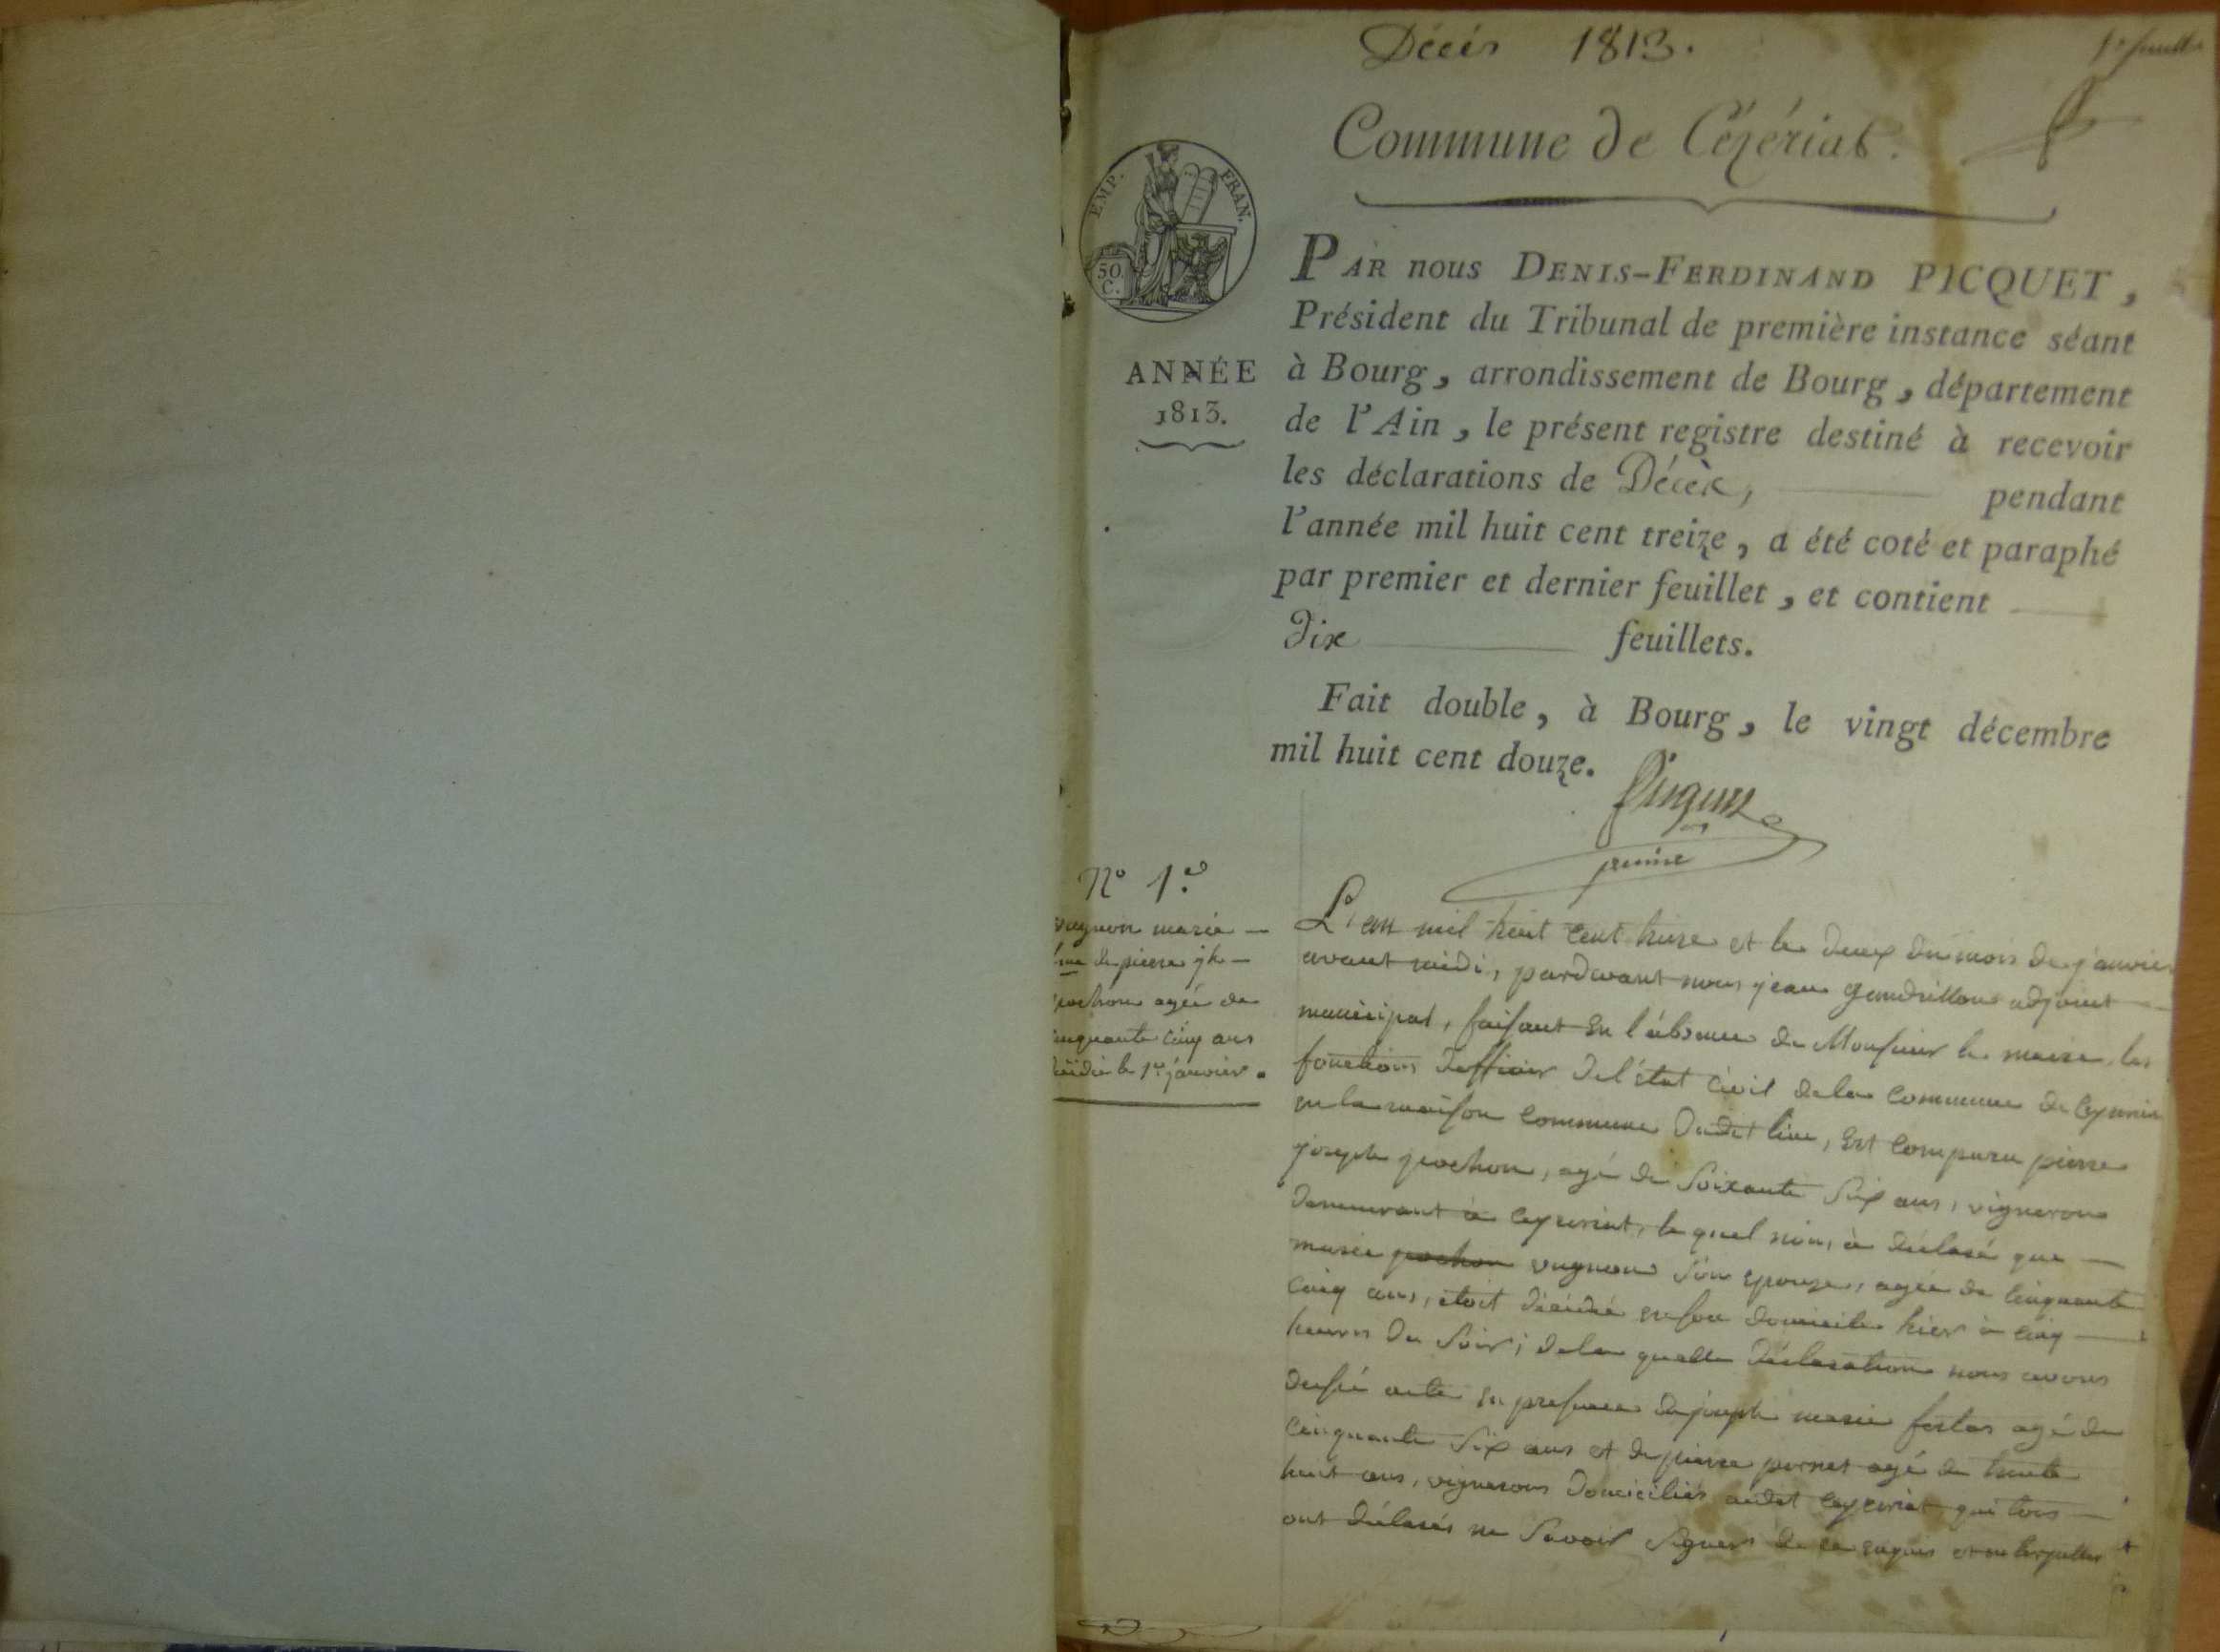 Décès 1813.
1er feuillet
Commune de Cézériat.
EMP. FRAN.
50 C.
ANNÉE
1813.
PAR nous DENIS-FERDINAND PICQUET,
Président du Tribunal de première instance séant
à Bourg, arrondissement de Bourg, département
de l'Ain, le présent registre destiné à recevoir
les déclarations de Décès, pendant
l'année mil huit cent treize, a été coté et paraphé
par premier et dernier feuillet, et contient
Dix feuillets.
Fait double, à Bourg, le vingt décembre
mil huit cent douze.
Picquet
N° 1er
vugnon marie
fme de pierre jh
pochon agée de
cinquante cinq ans
décédée le 1er janvier.
L'an mil huit cent treize et le deux du mois de janvier
avant midi, pardevant nous jean gandrillon adjoint
municipal, faisant en l'absence de Monsieur le maire, les
fonctions d'officier de l'état civil de la commune de ceyzeriat
en la maison commune dudit lieu, est comparu pierre
joseph pochon, agé de soixante six ans, vigneron
demeurant à ceyzeriat, le quel nous à déclaré que
marie pochon vugnon son epouse, agée de cinquante
cinq ans, étoit décédée en son domicile hier à cinq
heures du soir; de la quelle déclaration nous avons
dressé acte en presence de joseph marie agé de
cinquante six ans et de pierre pernet agé de trente
huit ans, vignerons domiciliés audit ceyzeriat qui tous
ont déclarés ne savoir signer de ce enquis et interpellés